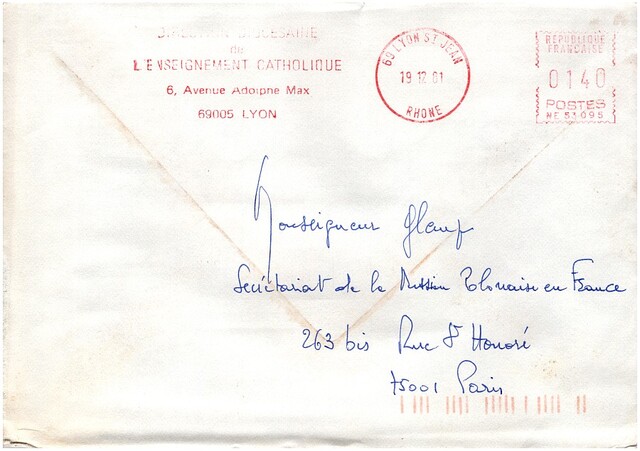 DIRECTION DIOCESAINE
de
L'ENSEIGNEMENT CATHOLIQUE
6, Avenue Adolphe Max
69005 LYON
69 LYON ST JEAN
19 12 81
RHONE
REPUBLIQUE
FRANCAISE
0140
POSTES
NE 53095
Monseigneur
Secrétariat de la Mission Polonaise en France
263 bis Rue St Honoré
75001 Paris